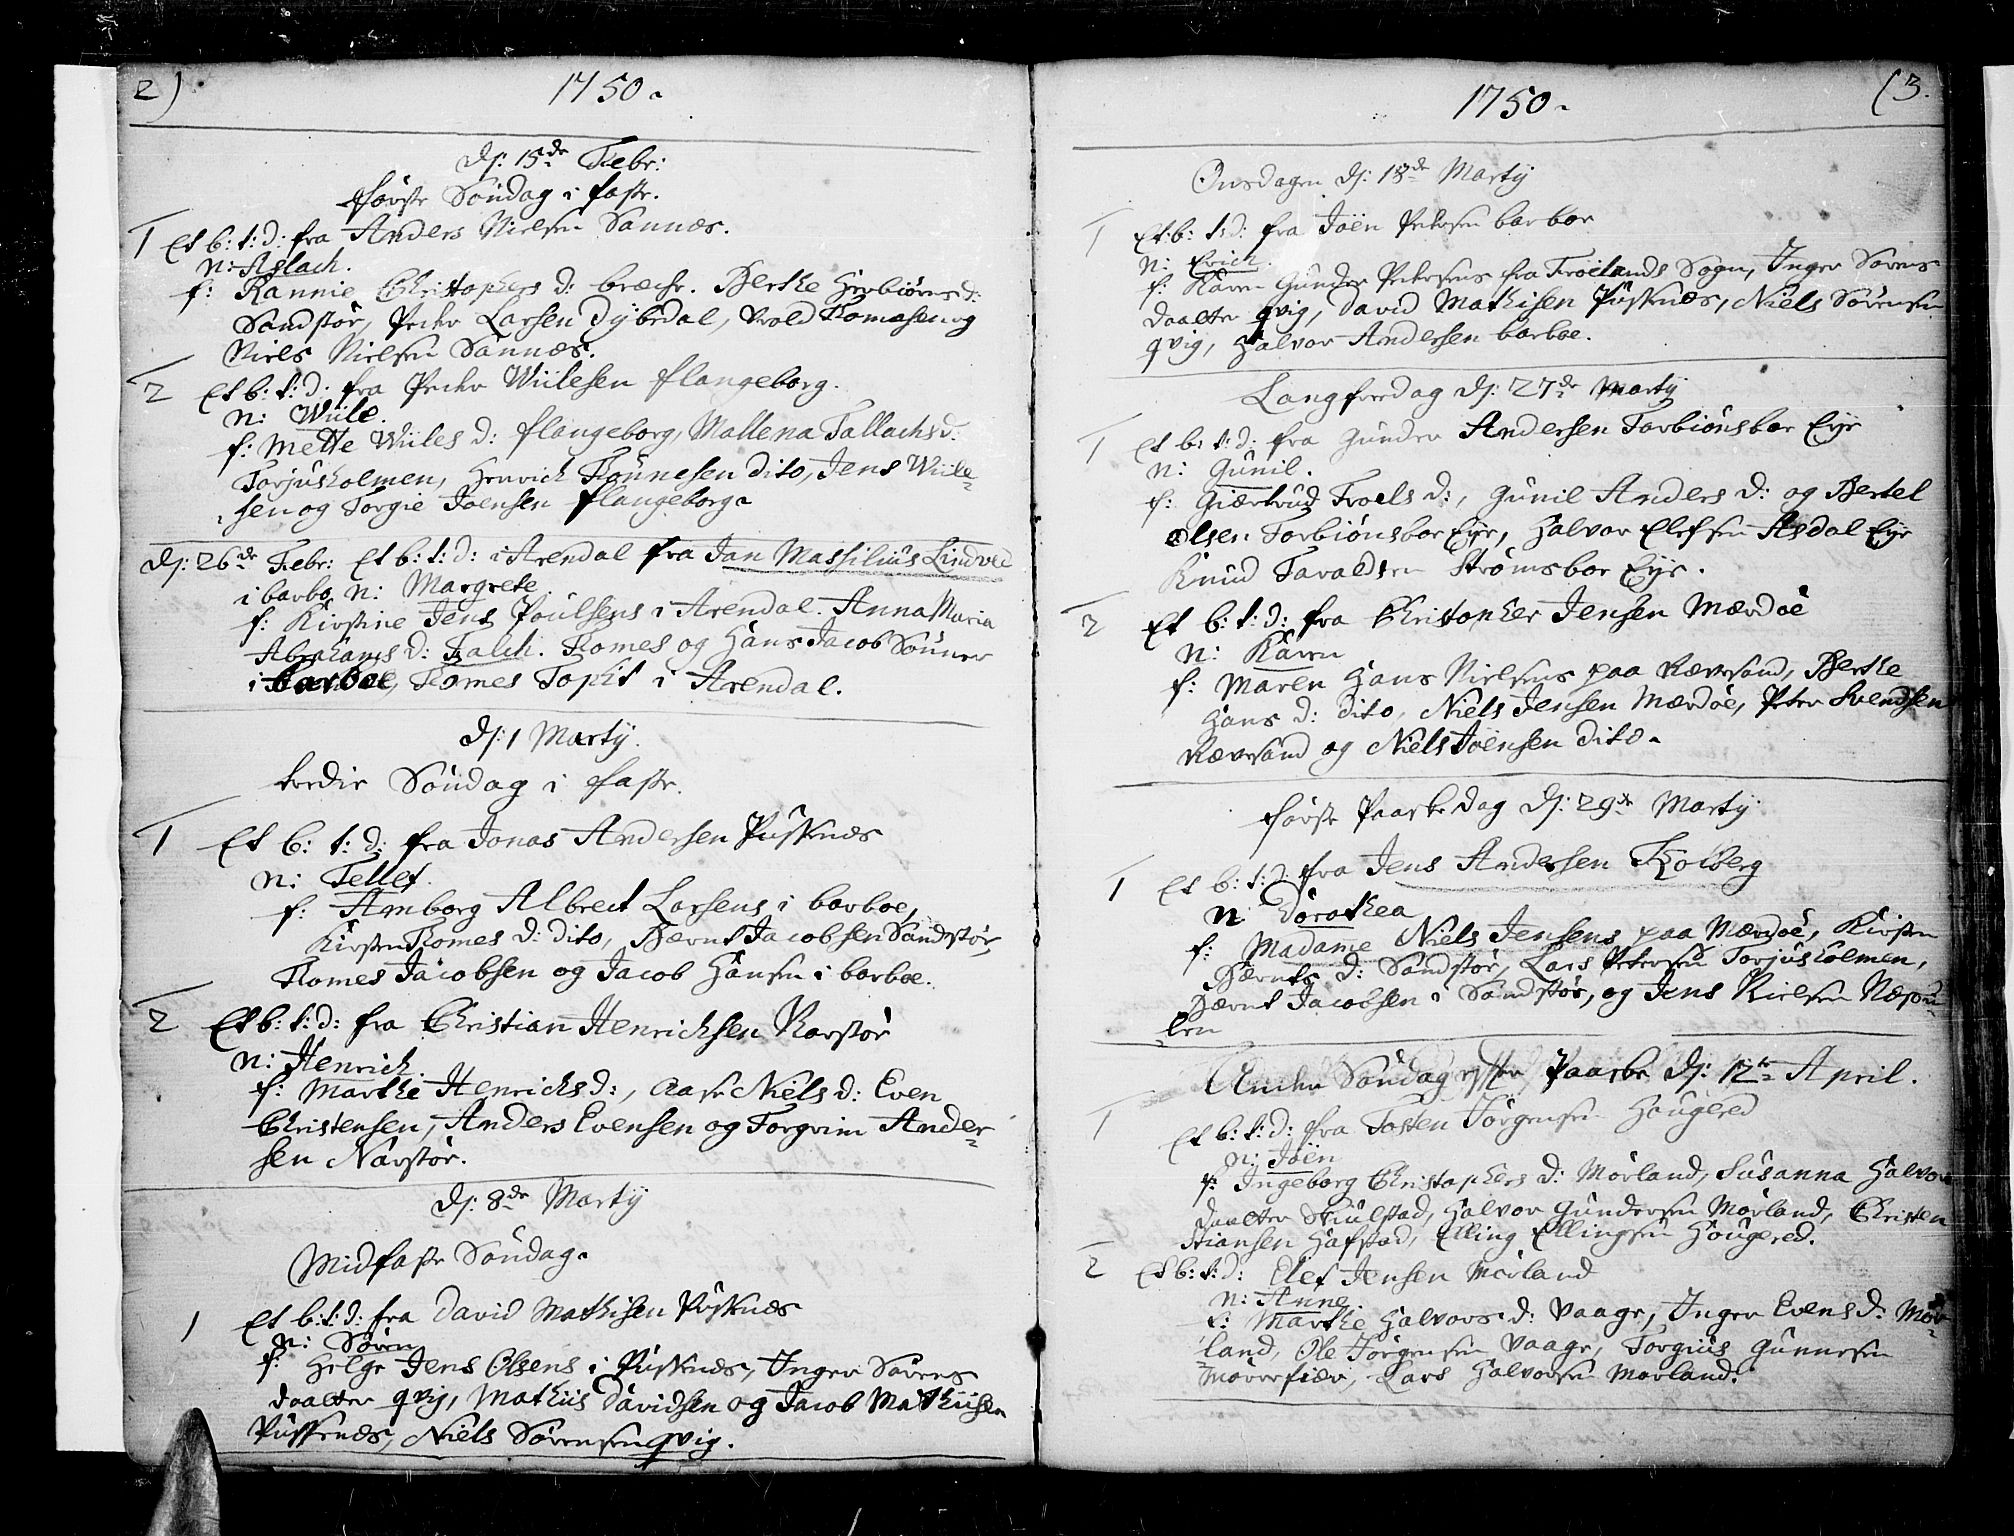 2)
1750.
Dj: 15de Febr:
første Søndag i faste.
1
Et b: t: d: fra Anders Nielsen Sannæs.
N: Aslach.
f: Rannie Christophers d: Berthe Herbiørns d:
Sandstøe, Peder Larsen Dybedal, Tomesen og
Niels Nielsen Sannæs.
2
Et b: t: d: fra Peder Wiilesen flangeborg.
N: Wiile.
f: Mette Wiiles d: flangeborg, Mallena Tallachs d:
Torjusholmen, Henrich Tønnesen dito, Jens Wiile-
sen og Torgie Joensen flangeborg.
Dj: 26de Febr: Et b: t: d: i Arendal fra Jan Massilius Lindved
i barbo, N: Margrete.
f: Kirstine Jens Poulsens i Arendal. Anna Maria
Abrahams d: Falch. Tomes og Hans Jacob Sønner
i barboe, Tomes Topht i Arendal.
Dj: 1 Martÿ.
tredie Søndag i faste.
1
Et b: t: d: fra Jonas Andersen Pusknæs
N: Tellef.
f: Amborg Albrect Larsens i barboe,
Kirsten Tomes d: dito, Bærnt Jacobsen Sandstøe,
Tomes Jacobsen og Jacob Hansen i barboe.
2
Et b: t: d: fra Christian Henrichsen Narstøe
N: Henrich.
f: Marthe Henrichs d:, Aase Niels d: Even
Christensen, Anders Evensen og Torgrim Ander-
sen Narstøe.
Dj: 8de Martÿ
Midfaste Søndag.
1
Et b: t: d: fra David Mathisen Pusknæs
N: Søren
f: Helge Jens Olsens i Pusknæs, Inger Sørens
daatter qvig, Mathiis Davidsen og Jacob Mathiisen
Pusknæs, Niels Sørensen qvig.
1750.
(3.
Onsdagen Dj: 18de Martÿ
1
Et b: t: d: fra Joen Petersen barboe
N: Erich.
f: Karen Gunder Petersens fra Froelands Sogn, Inger Sørens
daatter qvig, David Mathisen Pusknæs, Niels Sørensen
qvig, Halvor Andersen barboe.
Langfredag Dj: 27de Martÿ
1
Et b: t: d: fra Gunder Andersen Torbiønsboe Eye
N: Gunil.
f: Giærtrud Troels d:, Gunil Anders d: og Bertel
Olsen Torbiønsboe Eye, Halvor Elefsen Asdal Eye
Knud Taraldsen Strømsboe Eye.
2
Et b: t: d: fra Christopher Jensen Mærdøe
N: Karen
f: Maren Hans Nielsens paa Rævesand, Berthe
Hans d: dito, Niels Jensen Mærdøe, Peter Svendsen
Rævesand og Niels Joensen dito.
første Paaske Dag Dj: 29de Martÿ
1
Et b: t: d: fra Jens Andersen Kolberg
N: Dorothea
f: Madame Niels Jensens paa Mærdøe, Kirsten
Bærnts d: Sandstøe, Lars Petersen Torjusholmen,
Bærnt Jacobsen i Sandstøe, og Jens Nielsen Næsgu-
len
Anden Søndag efter Paaske Dj: 12te April.
1
Et b: t: d: fra Tosten Jørgensen Hougered
N: Joen
f: Ingeborg Christophers d: Mørland, Susanna Halvors
daatter Skiulstad, Halvor Gundersen Mørland, Christen
Stiansen Hafstad, Elling Ellingsen Hougered.
2
Et b: t: d: Elef Jensen Mørland
N: Anne.
f: Marthe Halvors d: Vaage, Inger Evens d: Mør-
land, Ole Jørgensen Vaage, Torgius Gunnesen
Morrefiær, Lars Halvorsen Mørland.